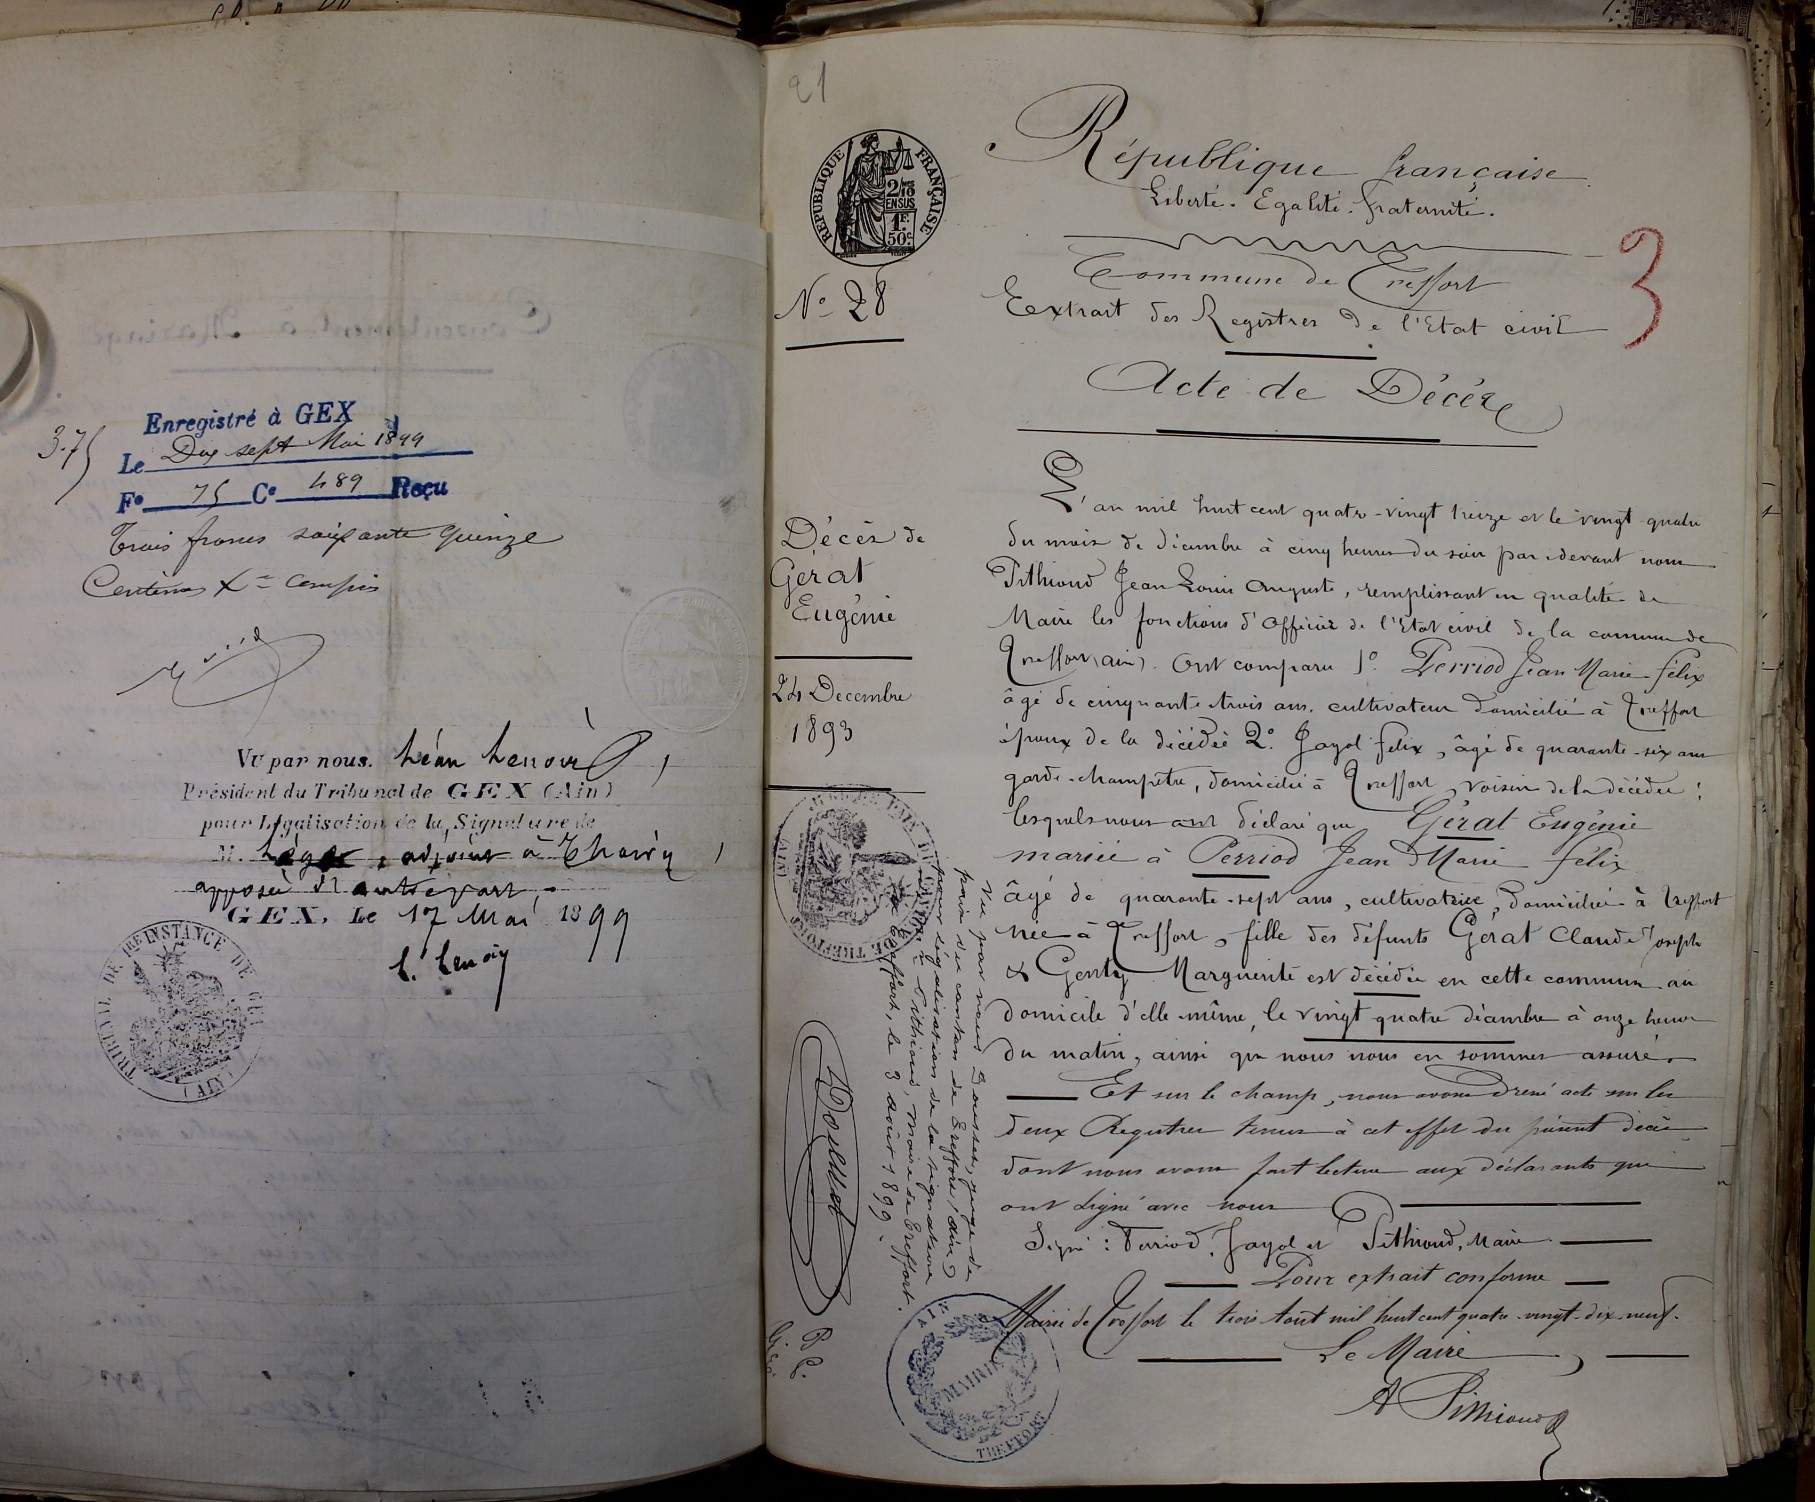 3.75
Enregistré à GEX
Le Dix sept Mai 1899
F° 75 C° 489 Reçu
Trois francs soixante quinze
Centimes Xes compris
Vu par nous. Léon Lenoir,
Président du Tribunal de GEX (Ain)
pour Légalisation de la Signature de
M. Léger, adjoint à Thoiry,
apposée d'autre part.
GEX, Le 17 Mai 1899
L. Lenoir
TRIBUNAL DE 1RE INSTANCE DE GEX
(AIN)
21
REPUBLIQUE FRANÇAISE
2/10
EN SUS
1F.
50c.
N° 28
Décès de
Gérat
Eugénie
24 Decembre
1893
Vu par nous Dousset, juge de
paix du canton de Treffort (Ain)
pour légalisation de la signature
de Mr Pithioud, maire de Treffort.
Treffort, le 3 août 1899.
République française
Liberté. Egalité. Fraternité.
3
Commune de Treffort
Extrait des Registres de l'Etat civil
Acte de Décès
L'an mil huit cent quatre-vingt treize et le vingt quatre
du mois de décembre à cinq heures du soir par devant nous
Pithioud Jean Louis Auguste, remplissant en qualité de
Maire les fonctions d'officier de l'Etat civil de la commune de
Treffort (ain). Ont comparu 1° Perriod Jean Marie Félix
âgé de cinquante trois ans, cultivateur domicilié à Treffort
époux de la décédée 2° Jayol Félix, âgé de quarante-six ans
garde-champêtre, domicilié à Treffort, voisin de la décédée;
lesquels nous ont déclaré que Gérat Eugénie
mariée à Perriod Jean Marie Félix
âgé de quarante-sept ans, cultivatrice, domiciliée à Treffort
née à Treffort, fille des défunts Gérat Claude Joseph
& Genty Marguerite est décédée en cette commune au
domicile d'elle-même, le vingt quatre décembre à onze heures
du matin, ainsi que nous nous en sommes assuré.
Et sur le champ, nous avons dressé acte sur les
deux Registres tenus à cet effet du présent décès
dont nous avons fait lecture aux déclarants qui
ont signé avec nous
Signé : Perriod, Jayol et Pithioud, Maire
Pour extrait conforme
Mairie de Treffort le trois Aout mil huit cent quatre-vingt-dix-neuf.
Le Maire
A Pithioud
MAIRIE
TREFFORT
AIN